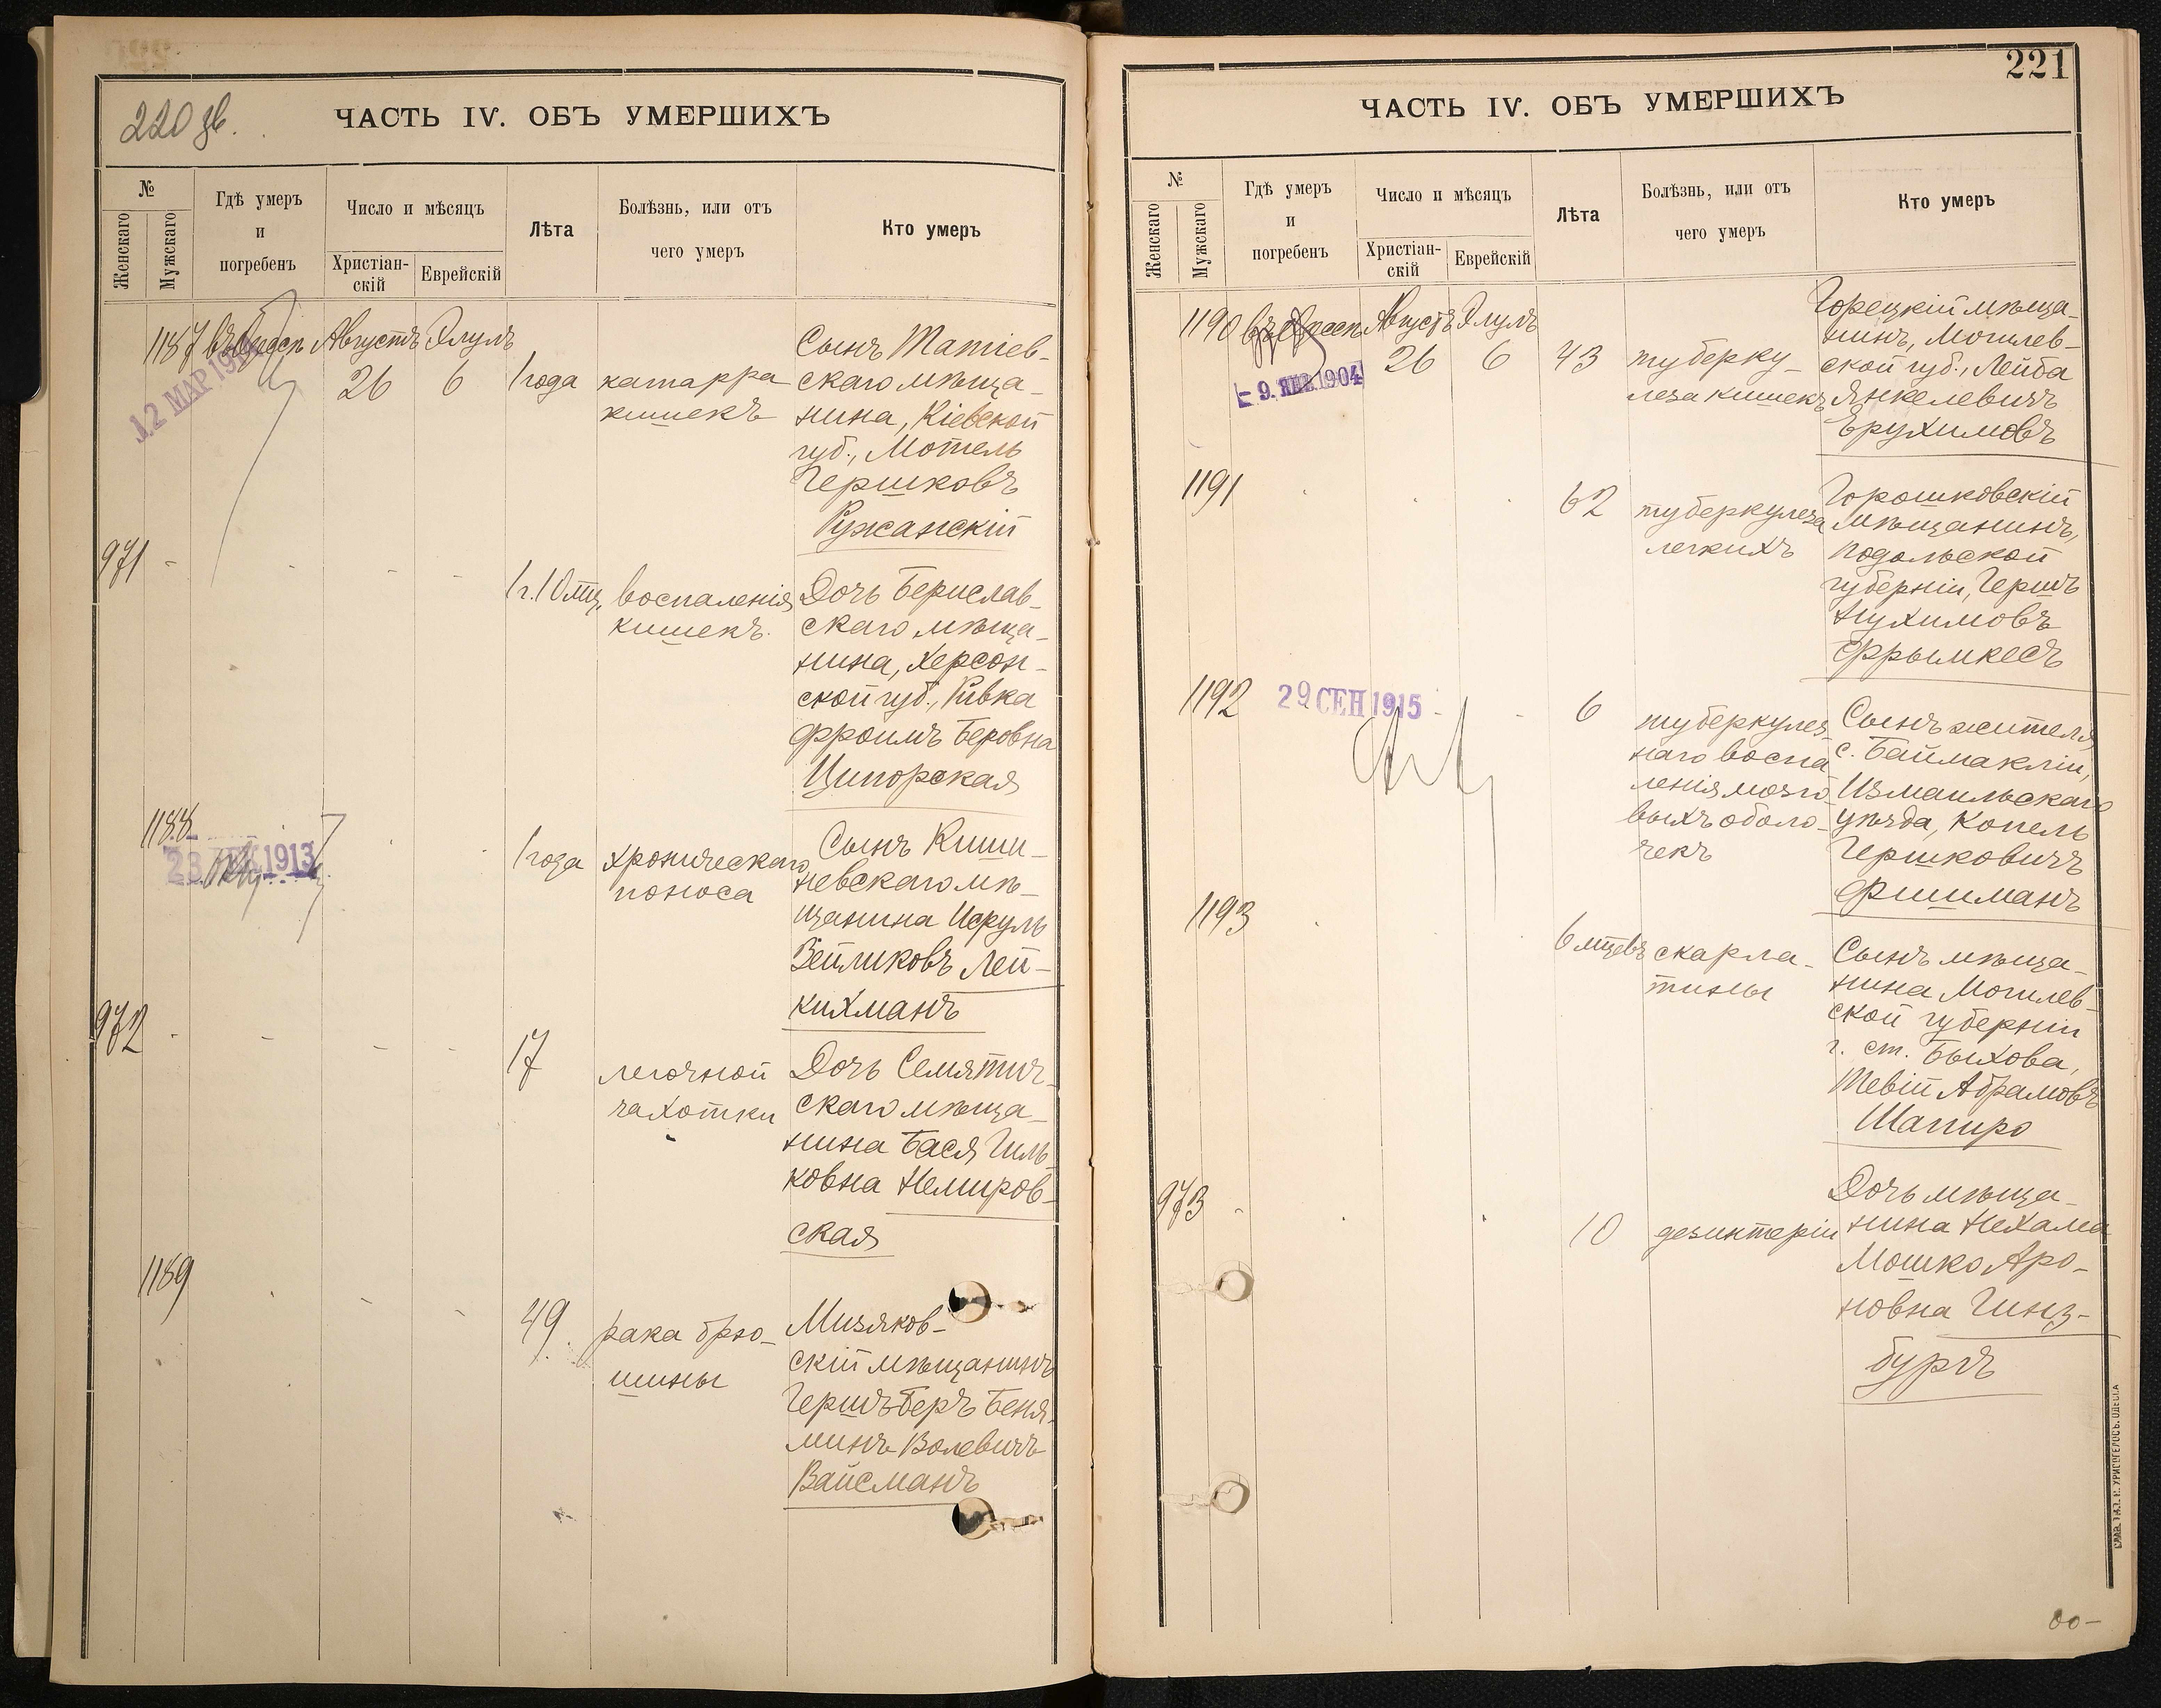 220 об.
ЧАСТЬ IV. ОБЪ УМЕРШИХЪ
№
Женскаго
Мужскаго
Гдѣ умеръ
и
погребенъ
Число и мѣсяцъ
Христіан-
скій
Еврейскій
Лѣта
Болѣзнь, или отъ
чего умеръ
Кто умеръ
1187 въ Одессѣ Августъ Элулъ
26 6 1 года катарра
кишекъ
12 МАР 191
Сынъ Татіев-
скаго мѣща-
нина, Кіевской
губ., Мотель
Гершковъ
Ружанскій
971 - - - -
1 г. 10 мц. воспаленія
кишекъ.
Дочь Берислав-
скаго мѣща-
нина, Херсон-
ской губ., Ривка
Фроимъ Беровна
Ципорская
1188
23 ДЕК 1913
1 года хроническаго
поноса
Сынъ Киши-
невскаго мѣ-
щанина Исруль
Зейликовъ Лей-
кихманъ
972 - - - -
17 легочной
чахотки
Дочь Семятич-
скаго мѣща-
нина Бася Гиль-
ковна Немиров-
ская
1189
49 рака брю-
шины
Мизяков-
скій мѣщанинъ
Гершъ Беръ Беня-
минъ Волевичъ
Вайсманъ
221
ЧАСТЬ IV. ОБЪ УМЕРШИХЪ
№
Женскаго
Мужскаго
Гдѣ умеръ
и
погребенъ
Число и мѣсяцъ
Христіан-
скій
Еврейскій
Лѣта
Болѣзнь, или отъ
чего умеръ
Кто умеръ
1190 въ Одессѣ Августъ Элулъ
26 6 43 туберку-
леза кишекъ
- 9. ЯНВ. 1904
Горецкій мѣща-
нинъ, Могилев-
ской губ., Лейба
Янкелевичъ
Ерухимовъ
1191
62 туберкулеза
легкихъ
Горошковскій
мѣщанинъ,
Подольской
губерніи, Гершъ
Нухимовъ
Фрымкесъ
1192 29 СЕН 1915
6 туберкулез-
наго воспа-
ленія мозго-
выхъ оболо-
чекъ
Сынъ жителя
с. Баймакліи,
Измаильскаго
уѣзда, Копель
Гершковичъ
Фишманъ
1193
6 мцевъ скарла-
тины
Сынъ мѣща-
нина Могилев-
ской губерніи
г. ст. Быхова,
Тевій Абрамовъ
Шапиро
973
10 дезинтеріи
Дочь мѣща-
нина Нехама
Мошко Аро-
новна Гинз-
бургъ